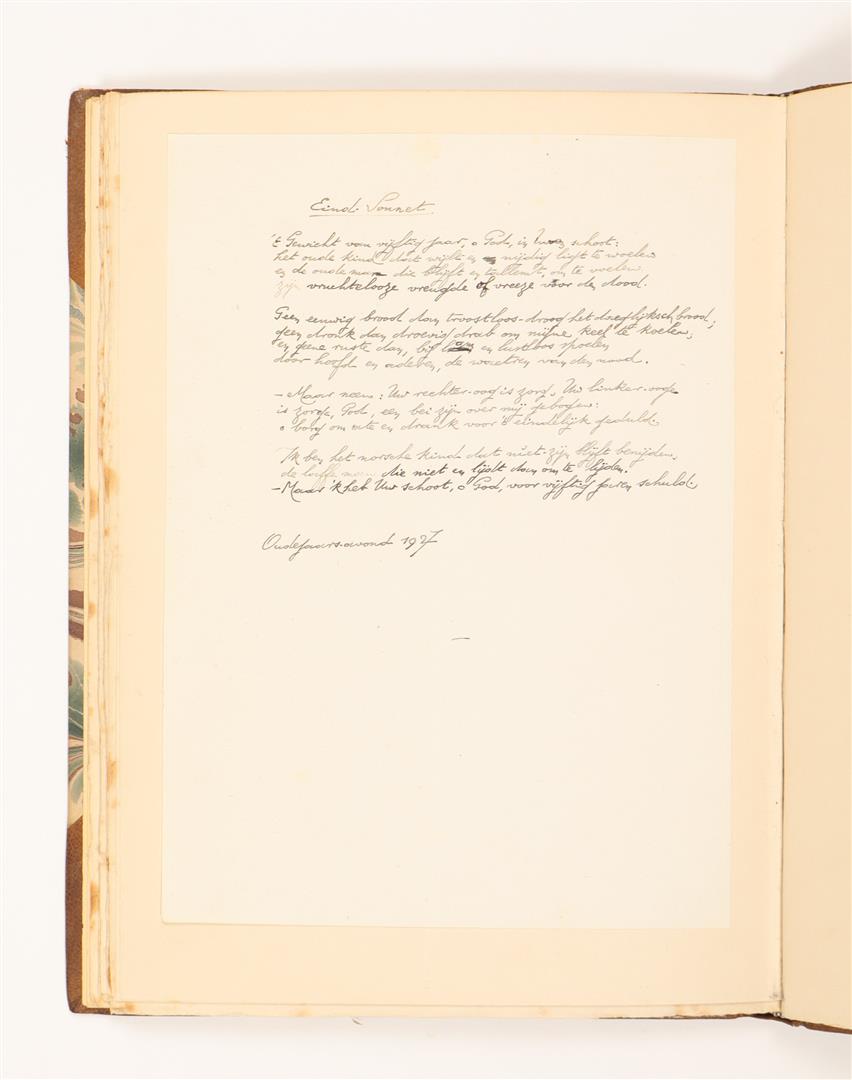 Eind-Sonnet.
't Gewicht van vijftig jaar, o God, in Uwen schoot:
het oude kind dat wijlt en nijdig ligt te woelen
en de oude man die blijft en talmt, om te voelen
zijn vruchtelooze vreugde of vreeze vóor den dood.
Geen eeuwig brood dan troostloos-droog het daeglijksch brood;
geen dronk dan droevig drab om mijne keel te koelen;
en gene ruste dan, bij en lustloos spoelen
door hoofd en aderen, de waetren van den nood.
– Maar neen: Uw rechter-oog is zorg. Uw linker-ooge
is zorge, God, een bei zijn over mij gebogen:
o borg om ate en drank voor 't eindelijk geduld.
Ik ben het norsche kind dat niet-zijn blijft benijden,
de laffe man die niet en lijdt dan om te lijden.
– Maar 'k het Uw schoot, o God, voor vijftig jaren schuld.
Oudejaars-avond 1927
–